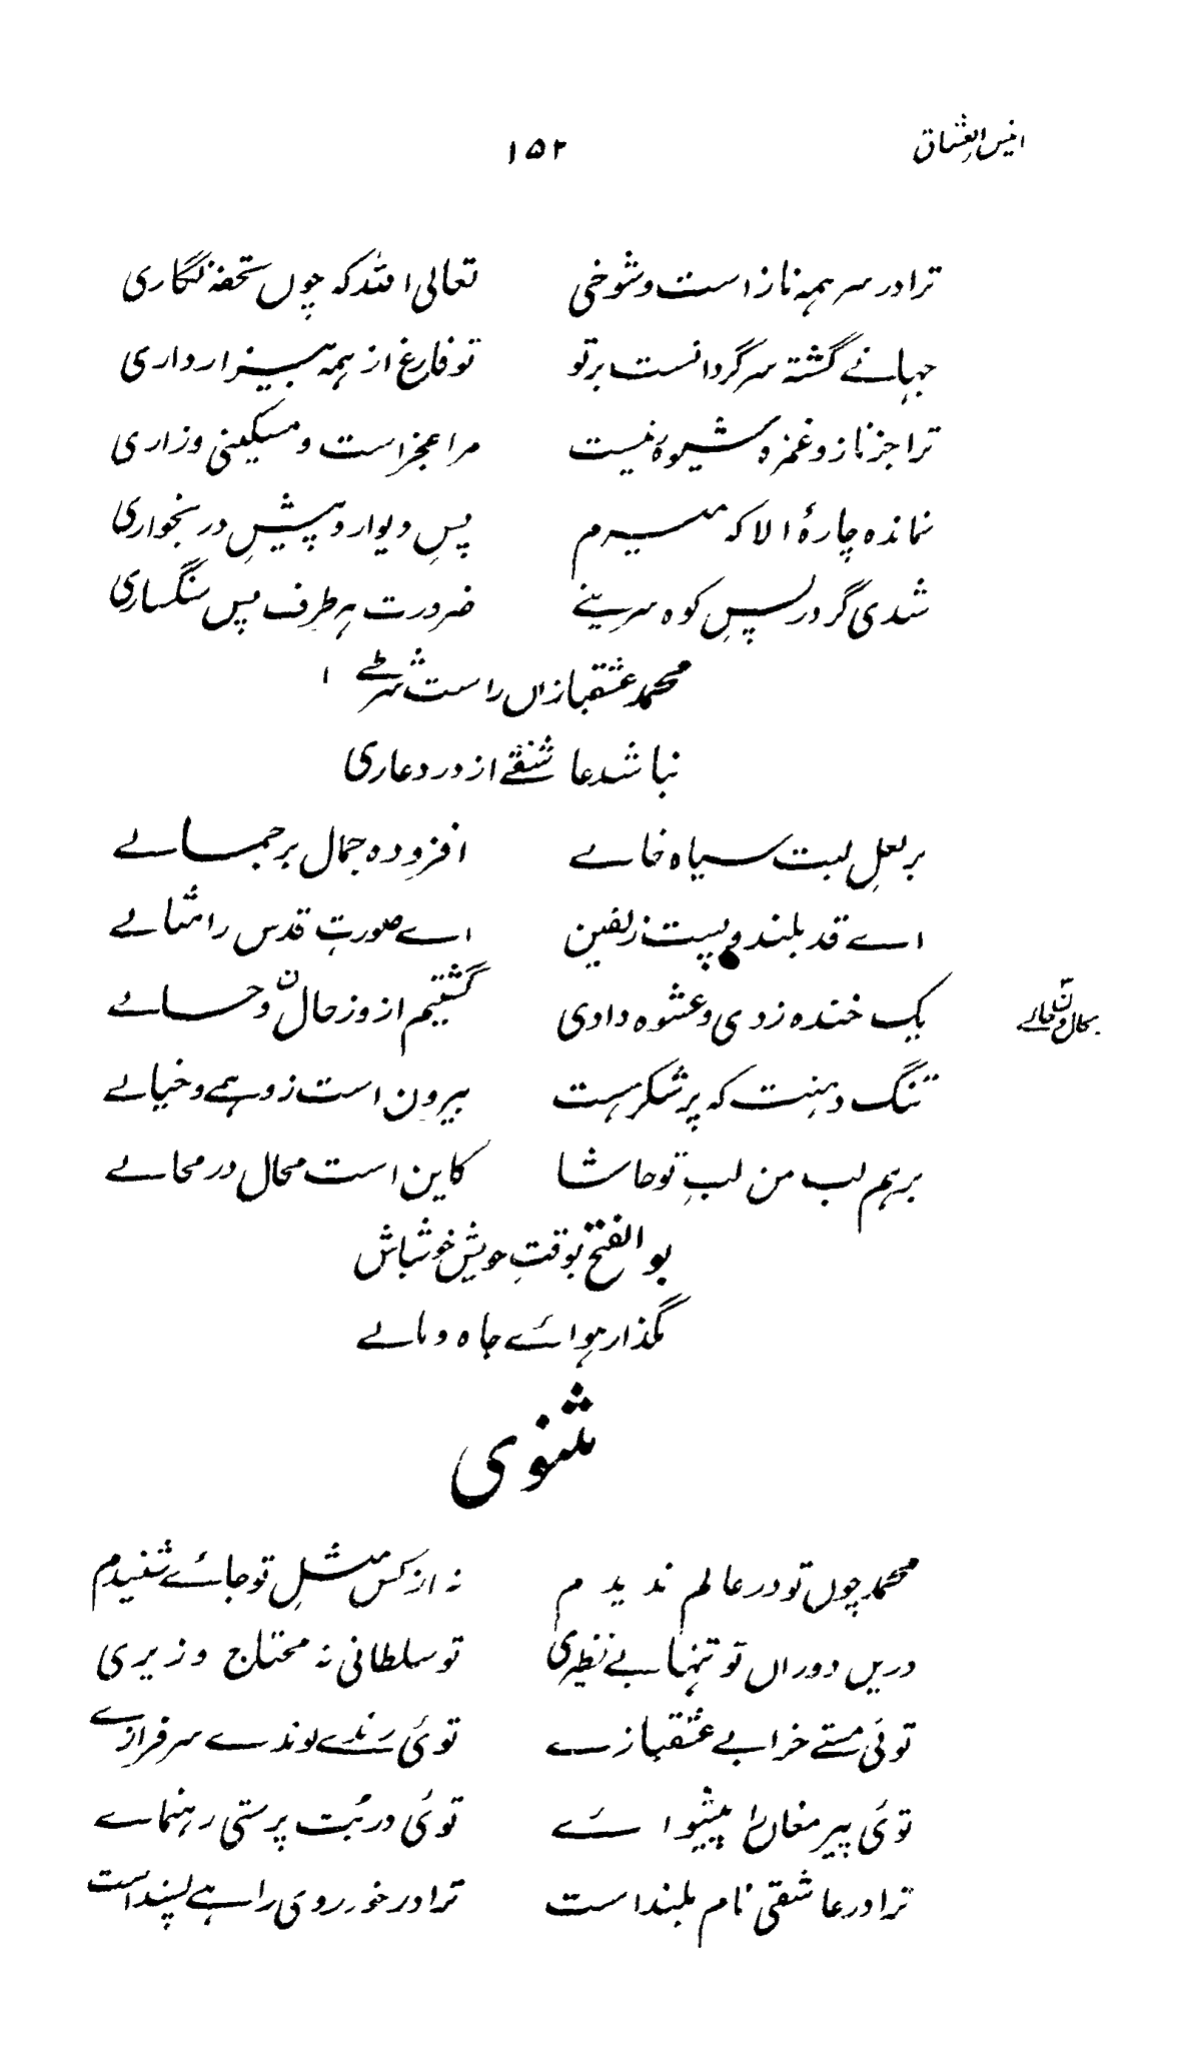 انیس العشاق ۱۵۲
ترا در سر همه ناز است و شوخی تعالی الله که چوں تحفه نگاری
جهانے گشته سرگردانست بر تو تو فارغ از همه بیزار داری
ترا جز ناز و غمزه شیوه نیست مرا عجز است و مسکینی و زاری
نمانده چارهٔ الا که میرم پسِ دیوار و پیشِ در بخواری
شدی گر در پسِ کوه سرینے ضرورت هر طرف پس سنگساری
محمد عشقبازاں راست شرطے ۱
نباشد عاشقے از درد عاری
بر لعلِ لبت سیاه خالے افزوده جمال بر جمالے
اے قد بلند و پست زلفین اے صورتِ قدس را مثالے
یک خنده زدی و عشوه دادی گشتیم از وز حال ن و حالے
ن بحال و جالے
تنگ دهنت که پر شکر هست بیرون است ز وهمے و خیالے
بر هم لب من لبِ تو حاشا کاین است محال در محالے
بو الفتح بوقتِ خویش خوشباش
بگذار هوائے جاه و مالے
مثنوی
محمد چوں تو در عالم ندیدم نه از کس مثلِ تو جائے شنیدم
دریں دوراں تو تنها بے نظیری تو سلطانی نه محتاج وزیری
توئی مستے خرابے عشقبازے توئی رندے لوندے سرفرازے
توئی پیر مغاں را پیشوائے توئی در بُت پرستی رهنماے
ترا در عاشقی نام بلند است ترا در خوروی راهے پسند است